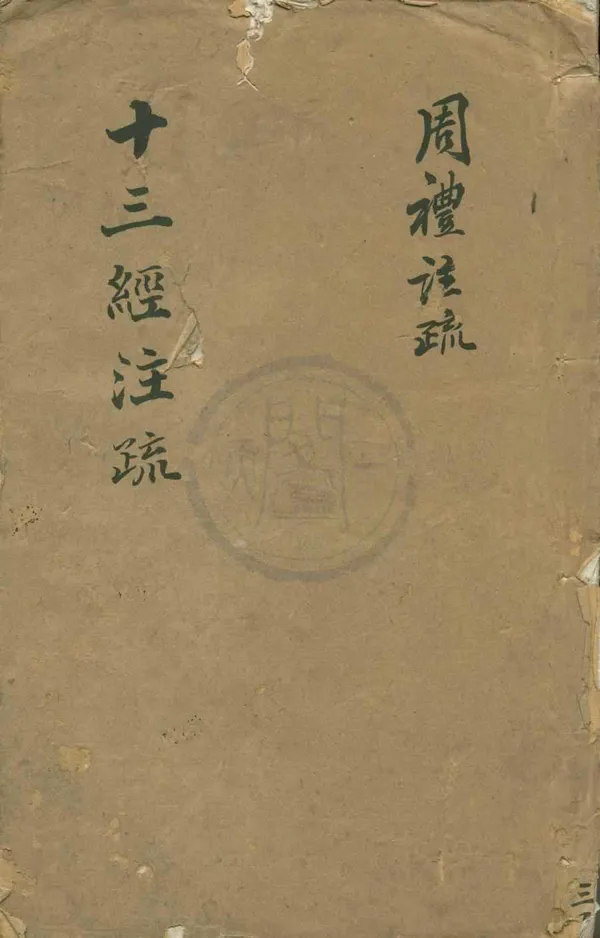 周禮註疏
十三經注疏
三